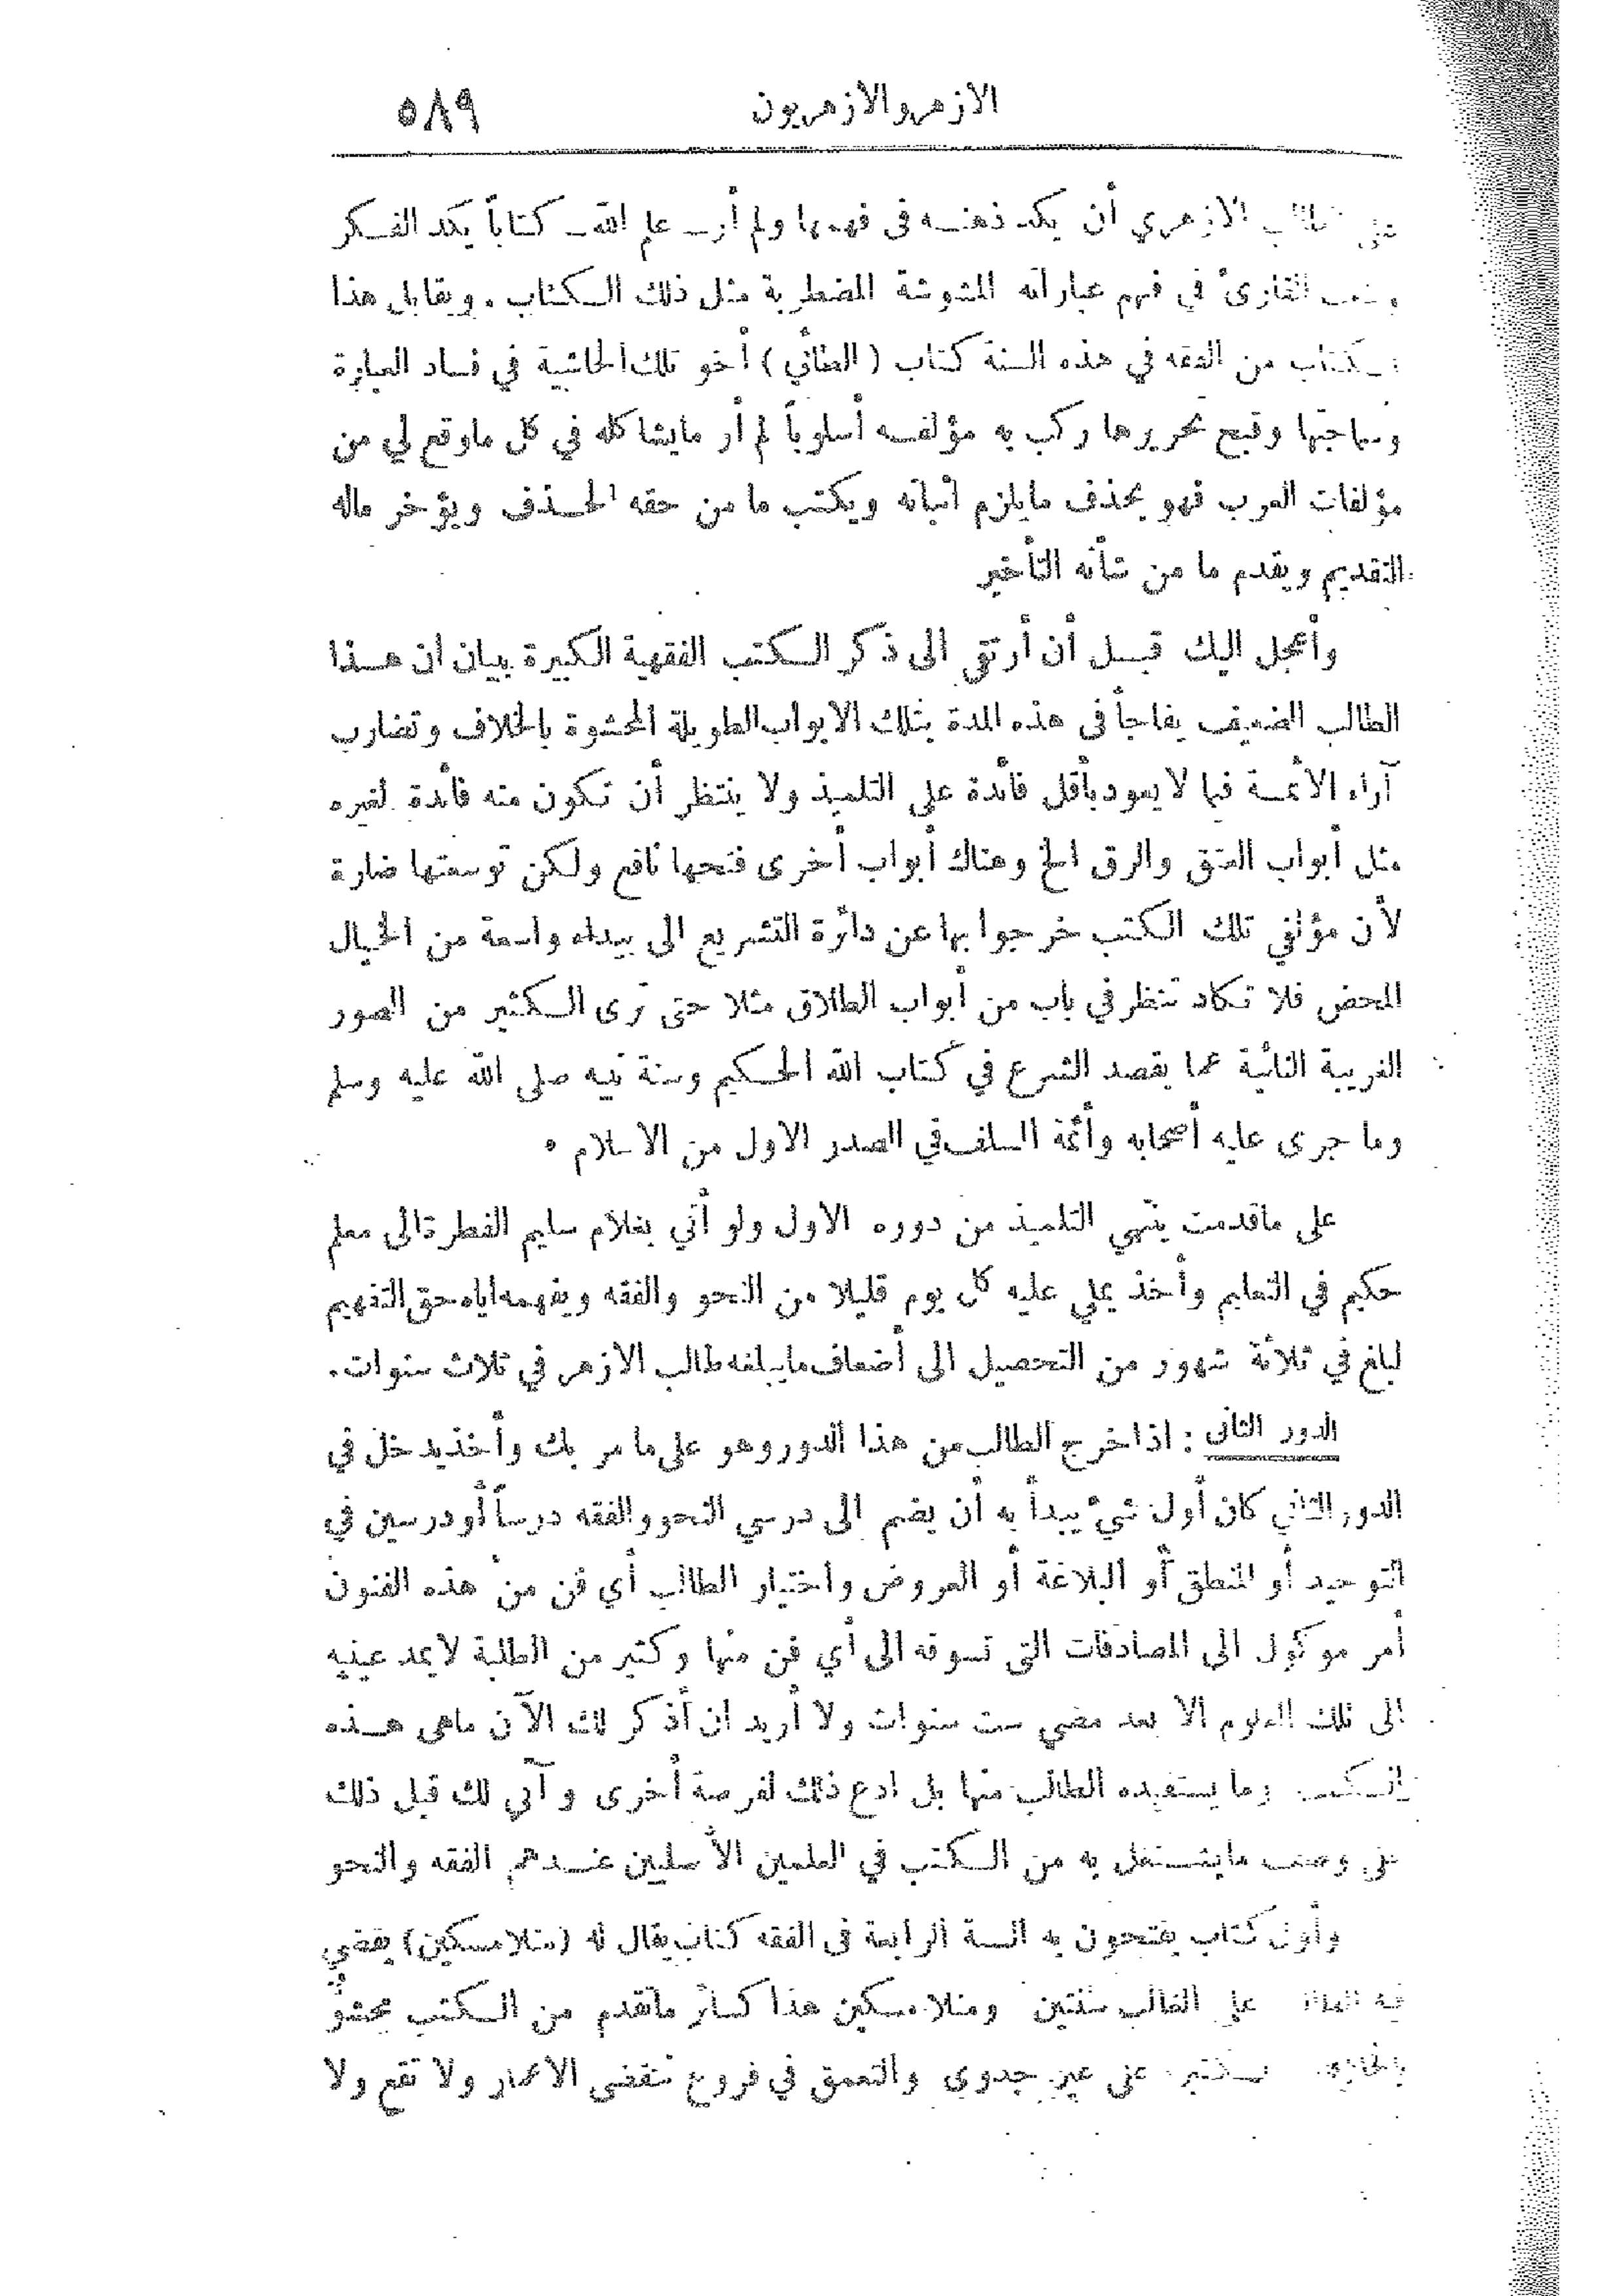 الازهر والازهريون ٥٨٩
الازهري أن يكد ذهنه فى فهمها ولم أر ـ علم الله ـ كتاباً يكد الفكر
القارئ في فهم عباراته المشوشة المضطربة مثل ذلك الكتاب . ويقابل هذا
من الفقه في هذه السنة كتاب ( الطائي ) أخو تلك الحاشية في فساد العبارة
وسماجتها وقبح تحريرها ركب به مؤلفه أسلوباً لم أر مايشاكله في كل ماوقع لي من
مؤلفات العرب فهو يحذف مايلزم اثباته ويكتب ما من حقه الحذف ويؤخر ماله
التقديم ويقدم ما من شأنه التأخير
وأعجل اليك قبل أن أرتقي الى ذكر الكتب الفقهية الكبيرة ببيان ان هذا
الطالب الضعيف يفاجأ فى هذه المدة بتلك الابواب الطويلة المحشوة بالخلاف وتضارب
آراء الائمة فيما لا يعود بأقل فائدة على التلميذ ولا ينتظر أن تكون منه فائدة لغيره
مثل أبواب العتق والرق الخ وهناك أبواب أخرى فتحها نافع ولكن توسعتها ضارة
لأن مؤلفي تلك الكتب خرجوا بها عن دائرة التشريع الى بيداء واسعة من الخيال
المحض فلا تكاد تنظر في باب من أبواب الطلاق مثلا حتى ترى الكثير من الصور
الغريبة النائية عما يقصد الشرع في كتاب الله الحكيم وسنة نبيه صلى الله عليه وسلم
وما جرى عليه أصحابه وأئمة السلف في الصدر الاول من الاسلام .
على ماقدمت ينتهي التلميذ من دوره الاول ولو أتي بغلام سليم الفطرة الى معلم
حكيم في التعليم وأخذ يملي عليه كل يوم قليلا من النحو والفقه ويفهمه اياه حق التفهيم
لبلغ في ثلاثة شهور من التحصيل الى أضعاف مايبلغه طالب الازهر في ثلاث سنوات .
الدور الثانى : اذا خرج الطالب من هذا الدور وهو على ما مر بك وأخذ يدخل في
الدور الثاني كان أول شيء يبدأ به أن يضم الى درسي النحو والفقه درساً أو درسين في
التوحيد أو المنطق أو البلاغة أو العروض واختيار الطالب أي فن من هذه الفنون
أمر موكول الى المصادفات التى تسوقه الى أي فن منها وكثير من الطلبة لا يمد عينيه
الى تلك العلوم الا بعد مضي ست سنوات ولا أريد ان أذكر لك الآن ماهى هذه
الكتب وما يستفيده الطالب منها بل ادع ذلك لفرصة أخرى وآتي لك قبل ذلك
على وصف مايشتغل به من الكتب في العلمين الأصليين عندهم الفقه والنحو
وأول كتاب يفتتحون به السنة الرابعة فى الفقه كتاب يقال له (منلا مسكين) يقضي
فيه على الغالب سنتين ومنلا مسكين هذا كسائر ماتقدم من الكتب محشوٌّ
غير جدوى والتعمق في فروع تنقضى الاعمار ولا تقع ولا